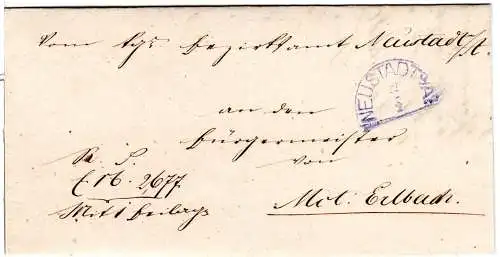 Vom kgl. Bezirksamt Neustadt/A.
NEUSTADT A/
2
an den
Bürgermeister
von
R. S.
E. Nb. 2677.
Mit 1 Beilage
Mkt. Erlbach.